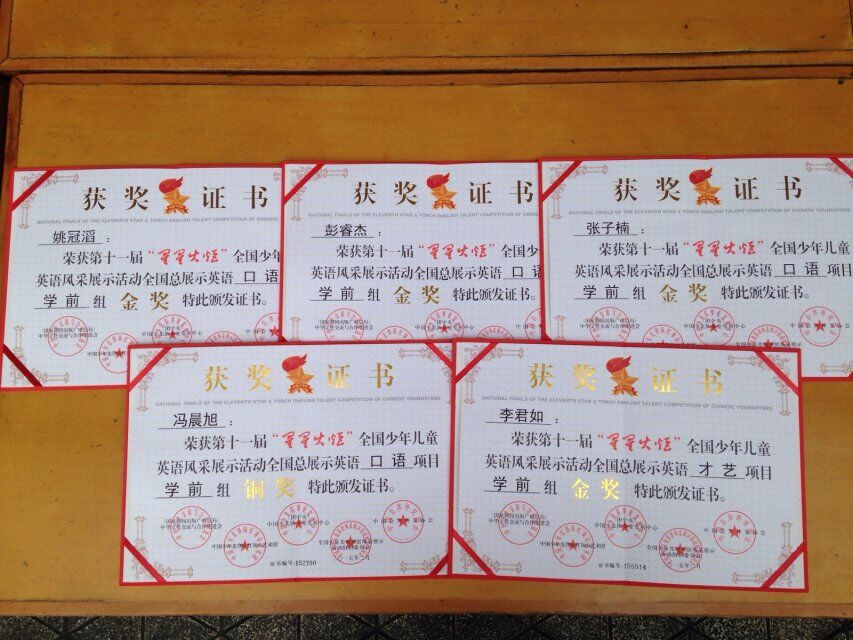 获奖证书
NATIONAL FINALS OF THE ELEVENTH STAR & TORCH ENGLISH TALENT COMPETITION OF CHINESE
姚冠滔：
荣获第十一届“星星火炬”全国少
英语风采展示活动全国总展示英语 口语
学前 组 金奖 特此颁发证书。
获奖证书
NATIONAL FINALS OF THE ELEVENTH STAR & TORCH ENGLISH TALENT COMPETITION OF CHINESE
彭睿杰：
荣获第十一届“星星火炬”全国少
英语风采展示活动全国总展示英语 口语
学前 组 金奖 特此颁发证书。
获奖证书
NATIONAL FINALS OF THE ELEVENTH STAR & TORCH ENGLISH TALENT COMPETITION OF CHINESE YOUNGSTERS
张子楠：
荣获第十一届“星星火炬”全国少年儿童
英语风采展示活动全国总展示英语 口语 项目
学前 组 金奖 特此颁发证书。
获奖证书
NATIONAL FINALS OF THE ELEVENTH STAR & TORCH ENGLISH TALENT COMPETITION OF CHINESE YOUNGSTERS
冯晨旭：
荣获第十一届“星星火炬”全国少年儿童
英语风采展示活动全国总展示英语 口语 项目
学前 组 铜奖 特此颁发证书。
证书编号:152790
获奖证书
NATIONAL FINALS OF THE ELEVENTH STAR & TORCH ENGLISH TALENT COMPETITION OF CHINESE YOUNGSTERS
李君如：
荣获第十一届“星星火炬”全国少年儿童
英语风采展示活动全国总展示英语 才艺 项目
学前 组 金奖 特此颁发证书。
证书编号:150514